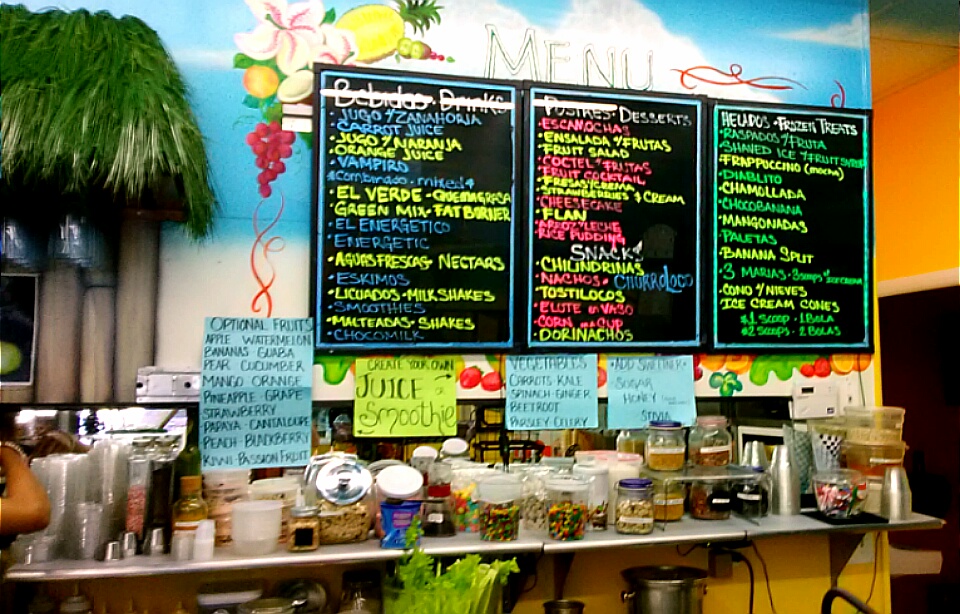 MENU
Bebidas • Drinks
• JUGO d/ZANAHORIA
CARROT JUICE
• JUGO d/NARANJA
ORANGE JUICE
• VAMPIRO
• EL VERDE • QUEMAGRASA
GREEN MIX • FAT BURNER
• EL ENERGETICO
ENERGETIC
• AGUAS FRESCAS • NECTARS
• ESKIMOS
• LICUADOS • MILKSHAKES
• SMOOTHIES
• MALTEADAS • SHAKES
• CHOCOMILK
POSTRES • DESSERTS
• ESCAMOCHAS
• ENSALADA d/FRUTAS
FRUIT SALAD
• COCTEL d/FRUTAS
FRUIT COCKTAIL
• FRESAS/CREMA
STRAWBERRIES & CREAM
• CHEESECAKE
• FLAN
• ARROZ c/LECHE
RICE PUDDING
SNACKS
• CHILINDRINAS
• NACHOS • CHURROLOCO
• TOSTILOCOS
• ELOTE en VASO
CORN in a CUP
• DORINACHOS
HELADOS • FROZEN TREATS
• RASPADOS d/FRUTA
SHAVED ICE d/FRUIT SYRUP
• FRAPPUCCINO (mocha)
• DIABLITO
• CHAMOLLADA
• CHOCOBANANA
• MANGONADAS
• PALETAS
• BANANA SPLIT
• 3 MARIAS • 3scoops d/ice crema
• CONO d/NIEVES
ICE CREAM CONES
$1 SCOOP • 1 BOLA
$2 SCOOPS • 2 BOLAS
OPTIONAL FRUITS
APPLE WATERMELON
BANANAS GUABA
PEAR CUCUMBER
MANGO ORANGE
PINEAPPLE • GRAPE
STRAWBERRY
PAPAYA • CANTALOUPE
PEACH • BLACKBERRY
KIWI • PASSION FRUIT
CREATE YOUR OWN
JUICE or
Smoothie
VEGETABLES
CARROTS KALE
SPINACH GINGER
BEETROOT
PARSLEY CELERY
SUGAR
HONEY
STEVIA